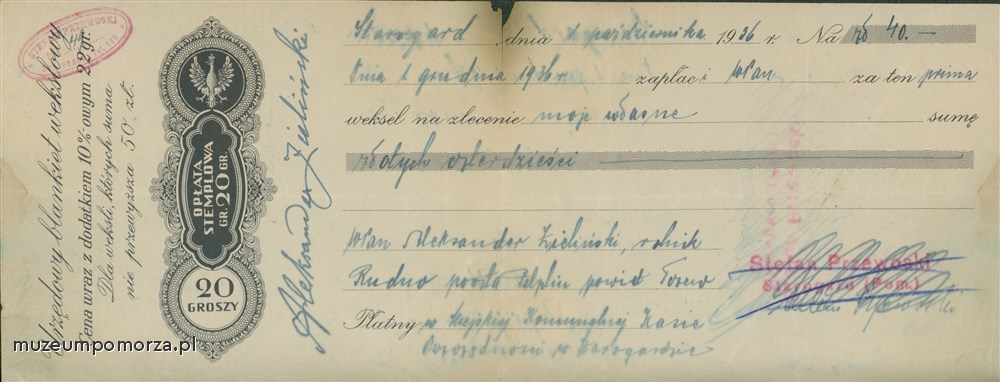 Urzędowy blankiet wekslowy
Cena wraz z dodatkiem 10% owym 22 gr.
Dla weksli, których suma
nie przewyższa 50 zł.
OPŁATA
STEMPLOWA
GR. 20 GR.
20
GROSZY
Aleksander Zieliński
Starogard dnia 1 października 1936 r. Na zł 40.—
Dnia 1 grudnia 1936 r. zapłaci WPan za ten prima
weksel na zlecenie moje własne sumę
złotych czterdzieści
WPan Aleksander Zieliński, rolnik
Rudno poczta Pelplin powiat Tczew
Płatny w Miejskiej Komunalnej Kasie
Oszczędności w Starogardzie
Stefan Przewoski
Starogard (Pom.)
muzeumpomorza.pl